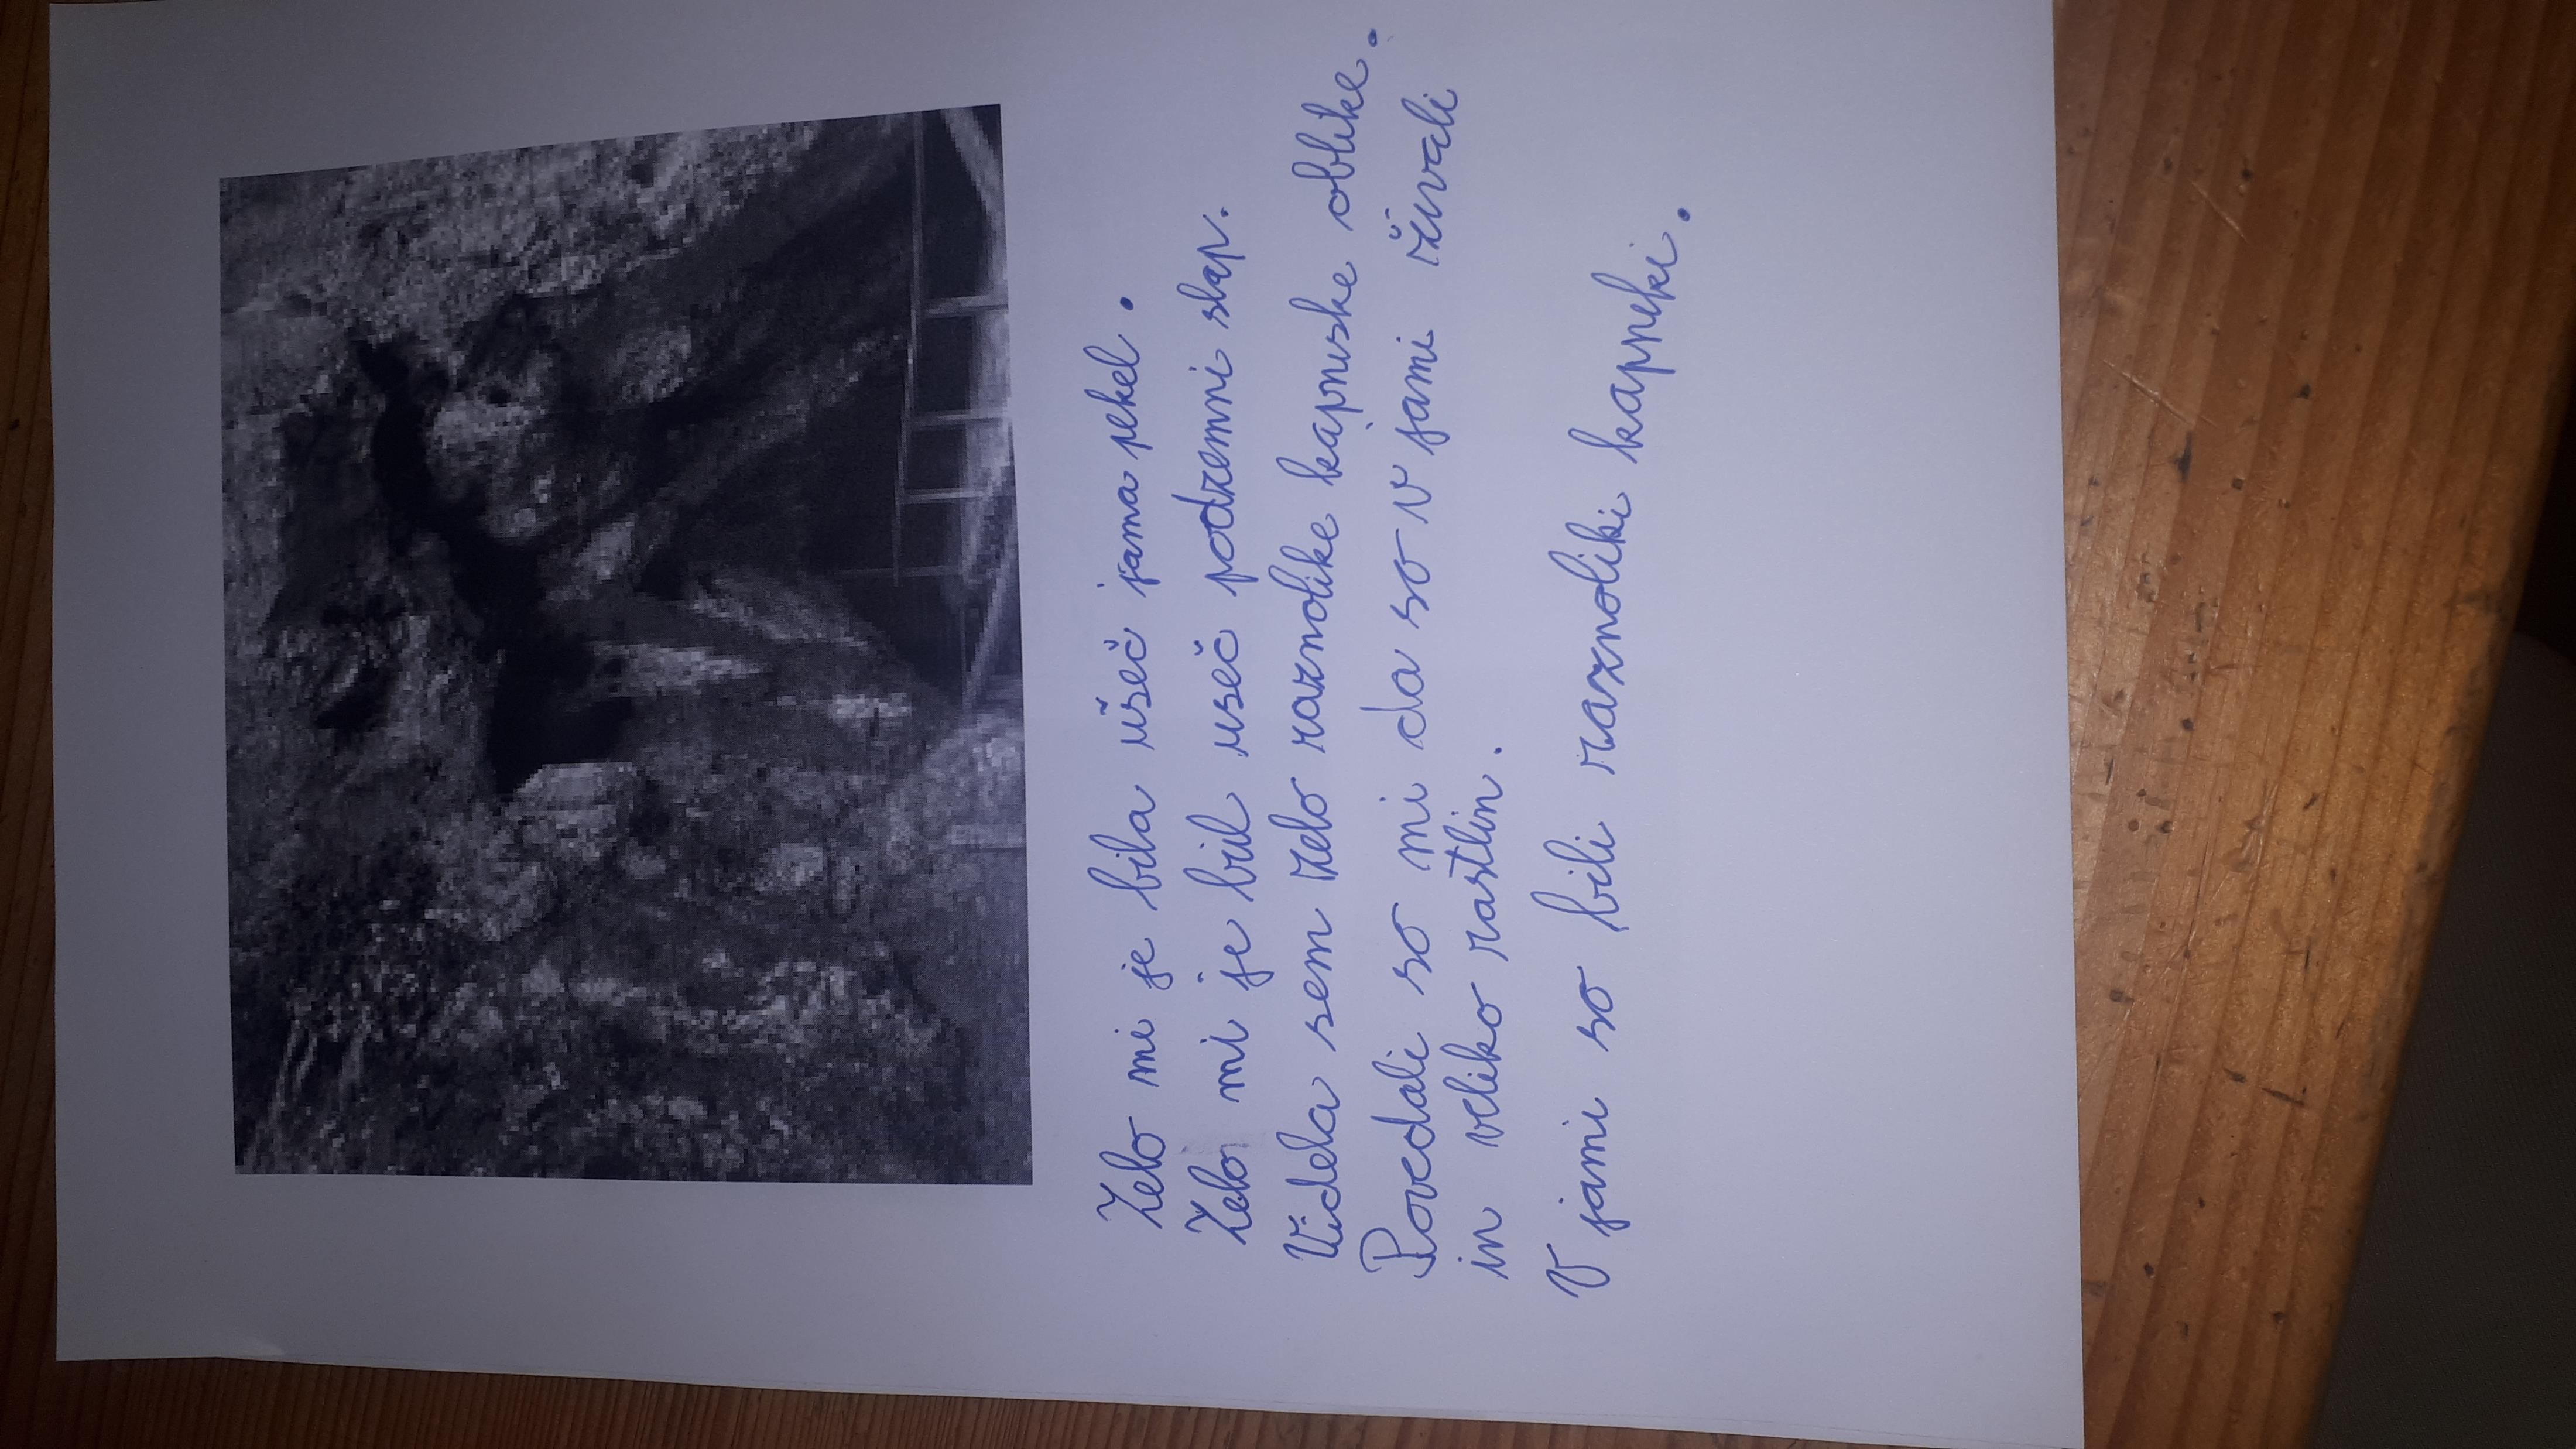 Zelo mi je bila všeč jama pekel.
Zelo mi je bil useč podzemni slap.
Videla sem zelo raznolike kapnuske oblike.
Povedali so mi da so v jami živali
in veliko rastlin.
V jami so bili raznoliki kapneki.